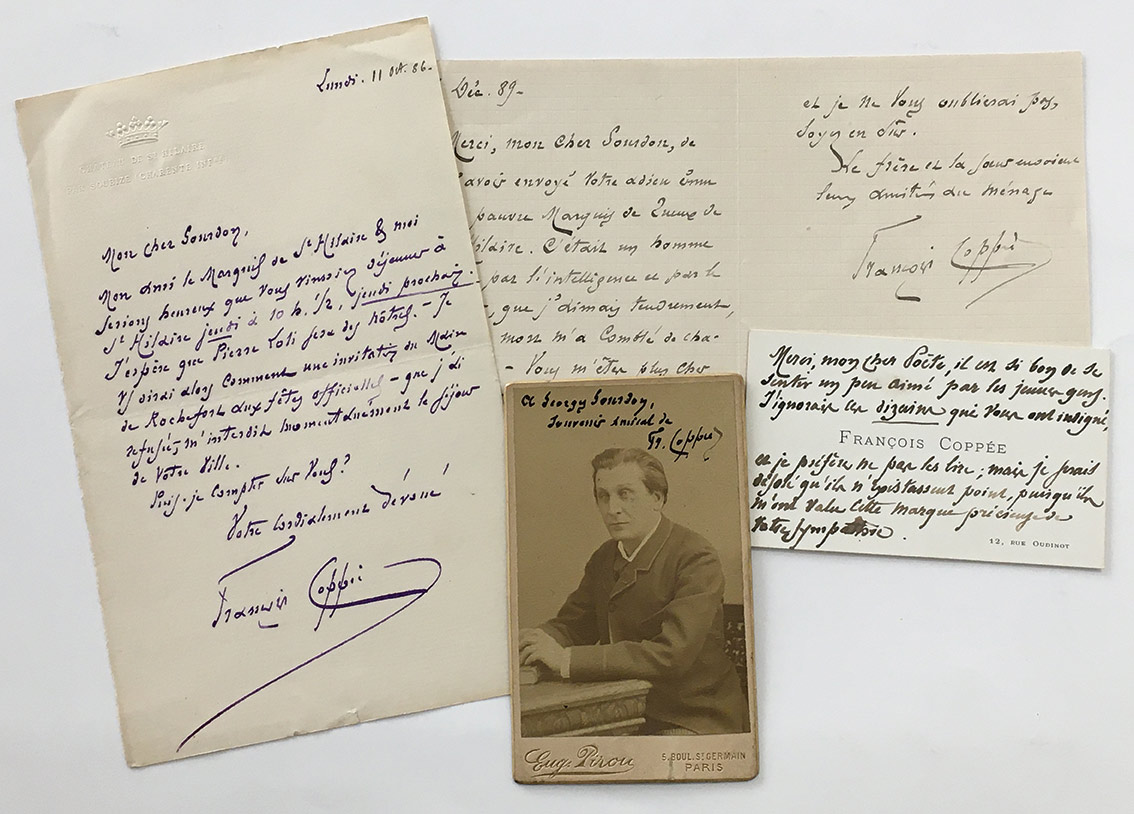 Lundi. 11 Oct. 86-
DE St HILAIRE
Mon cher Gourdon,
Mon ami le Marquis de St Hilaire & moi
serions heureux que vous vinssiez déjeuner à
St Hilaire jeudi à 10 h. 1/2, jeudi prochain.
J'espère que Pierre Loti sera des nôtres. - Je
vs dirai alors comment une invitation du Maire
de Rochefort aux fêtes officielles - que j'ai
refusée, m'interdit momentanément le séjour
de Votre Ville.
Puis-je compter sur vous?
Votre cordialement dévoué
François Coppée
Déc. 89-
Merci, mon cher Gourdon, de
avoir envoyé votre adieu ému
pauvre Marquis de Queux de
Hilaire. C'était un homme
par l'intelligence et par le
, que j'aimais tendrement,
mort m'a comblé de cha-
- Vous m'êtes plus cher
et je ne vous oublierai pas,
Soyez en sûr.
Le frère et la sœur envoient
leurs amitiés au ménage
François Coppée
Merci, mon cher Poète, il est si bon de se
sentir un peu aimé par les jeunes gens.
J'ignorais les dizains qui vous ont indigné,
FRANÇOIS COPPÉE
et je préfère ne pas les lire; mais je serais
désolé qu'ils n'existassent point, puisqu'ils
m'ont valu cette marque précieuse de
votre sympathie.
12, RUE OUDINOT
A Georges Gourdon,
Souvenir amical de
Fr. Coppée
Eug. Pirou
5, BOUL. St GERMAIN
PARIS